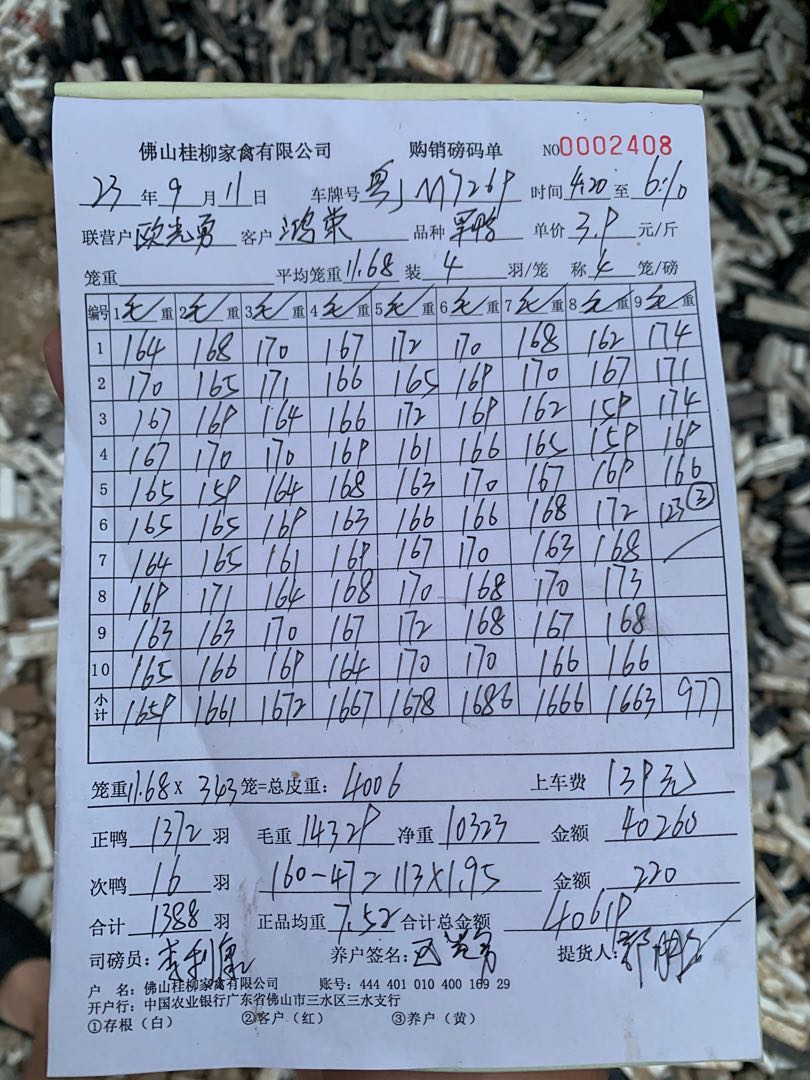 佛山桂柳家禽有限公司 购销磅码单 NO0002408
23 年 9 月 11 日 车牌号 粤J M7269 时间 4:20 至 6:10
联营户 欧光勇 客户 鸿荣 品种 单价 3.9 元/斤
笼重 平均笼重 11.68 装 4 羽/笼 称 4 笼/磅
编号 1 毛 重 2 毛 重 3 毛 重 4 毛 重 5 毛 重 6 毛 重 7 毛 重 8 毛 重 9 毛 重
1 164 168 170 167 172 170 168 162 174
2 170 165 171 166 165 169 170 167 171
3 167 169 164 166 172 169 162 159 174
4 167 170 170 169 161 166 165 159 169
5 165 159 164 168 163 170 167 169 166
6 165 165 169 163 166 166 168 172 123 ③
7 164 165 161 169 167 170 163 168
8 169 171 164 168 170 168 170 173
9 163 163 170 167 172 168 167 168
10 165 166 169 164 170 170 166 166
小计 1659 1661 1672 1667 1678 1686 1666 1663 977
笼重 11.68 X 343 笼=总皮重： 4006 上车费 139元
正鸭 1372 羽 毛重 14329 净重 10323 金额 40260
次鸭 16 羽 160-47= 113×1.95 金额 220
合计 1388 羽 正品均重 7.52 合计总金额 40619
司磅员： 李利 养户签名： 提货人：
户 名：佛山桂柳家禽有限公司 账号：444 401 010 400 169 29
开户行：中国农业银行广东省佛山市三水区三水支行
①存根（白） ②客户（红） ③养户（黄）